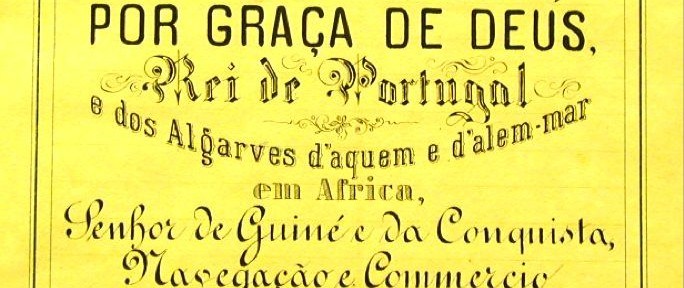 POR GRAÇA DE DEÚS,
Rei de Portugal
e dos Algarves d'aquem e d'alem-mar
em Africa,
Senhor de Guiné e da Conquista,
Navegação e Commercio